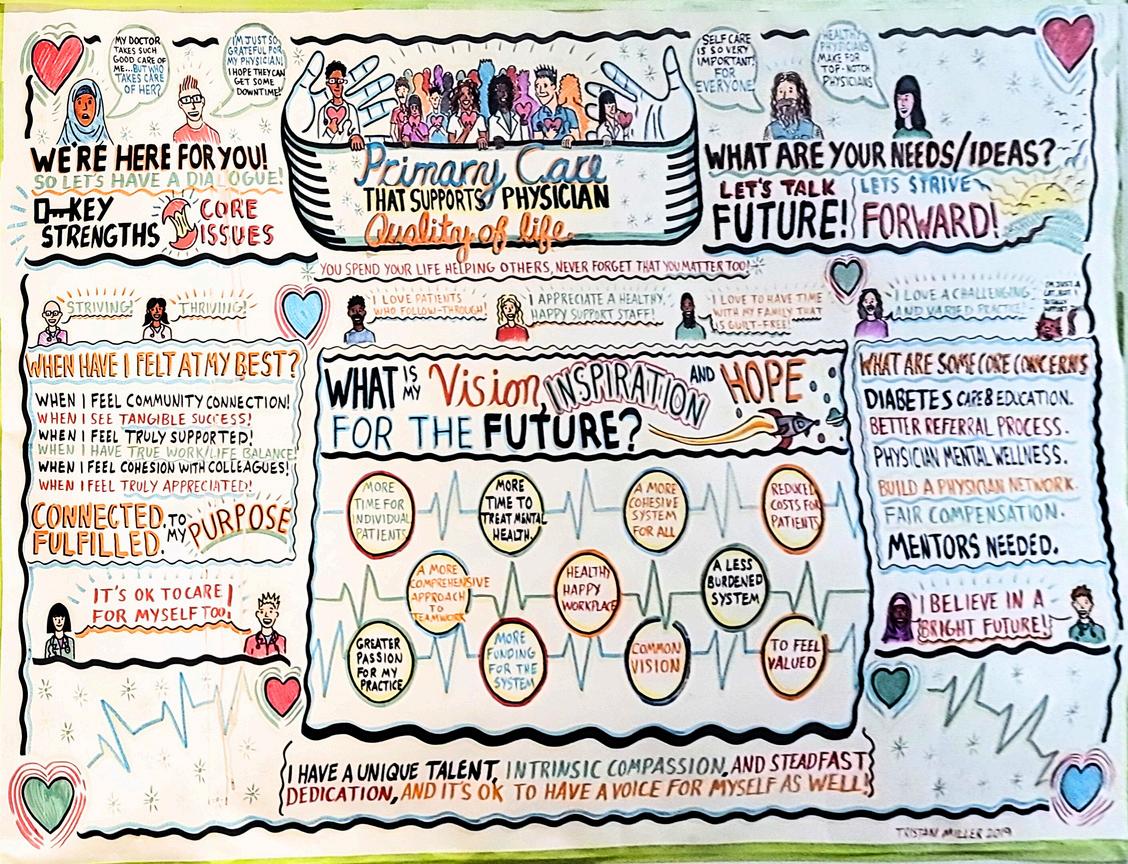 MY DOCTOR
TAKES SUCH
GOOD CARE OF
ME...BUT WHO
TAKES CARE
OF HER?
I'M JUST SO
GRATEFUL FOR
MY PHYSICIAN!
I HOPE THEY CAN
GET SOME
DOWNTIME!
WE'RE HERE FOR YOU!
SO LET'S HAVE A DIALOGUE!
KEY
STRENGTHS
CORE
ISSUES
Primary Care
THAT SUPPORTS PHYSICIAN
Quality of life.
SELF CARE
IS SO VERY
IMPORTANT!
FOR
EVERYONE!
HEALTHY
PHYSICIANS
MAKE FOR
TOP-NOTCH
PHYSICIANS
WHAT ARE YOUR NEEDS/IDEAS?
LET'S TALK
FUTURE!
LETS STRIVE
FORWARD!
YOU SPEND YOUR LIFE HELPING OTHERS, NEVER FORGET THAT YOU MATTER TOO!
STRIVING!
THRIVING!
I LOVE PATIENTS
WHO FOLLOW-THROUGH!
I APPRECIATE A HEALTHY,
HAPPY SUPPORT STAFF!
I LOVE TO HAVE TIME
WITH MY FAMILY THAT
IS GUILT-FREE!
I LOVE A CHALLENGING
AND VARIED PRACTICE!
I'M JUST A
CAT, BUT I
TOTALLY
WHEN HAVE I FELT AT MY BEST?
WHEN I FEEL COMMUNITY CONNECTION!
WHEN I SEE TANGIBLE SUCCESS!
WHEN I FEEL TRULY SUPPORTED!
WHEN I HAVE TRUE WORK/LIFE BALANCE!
WHEN I FEEL COHESION WITH COLLEAGUES!
WHEN I FEEL TRULY APPRECIATED!
CONNECTED,
FULFILLED.
TO
MY
PURPOSE
IT'S OK TO CARE
FOR MYSELF TOO!
WHAT IS MY Vision, INSPIRATION AND HOPE
FOR THE FUTURE?
MORE
TIME FOR
INDIVIDUAL
PATIENTS
MORE
TIME TO
TREAT MENTAL
HEALTH.
A MORE
COHESIVE
SYSTEM
FOR ALL
REDUCED
COSTS FOR
PATIENTS
A MORE
COMPREHENSIVE
APPROACH
TO
TEAMWORK
HEALTHY
HAPPY
WORKPLACE
A LESS
BURDENED
SYSTEM
GREATER
PASSION
FOR MY
PRACTICE
MORE
FUNDING
FOR THE
SYSTEM
COMMON
VISION
TO FEEL
VALUED
WHAT ARE SOME CORE CONCERNS
DIABETES CARE & EDUCATION.
BETTER REFERRAL PROCESS.
PHYSICIAN MENTAL WELLNESS.
BUILD A PHYSICIAN NETWORK.
FAIR COMPENSATION.
MENTORS NEEDED.
I BELIEVE IN A
BRIGHT FUTURE!
I HAVE A UNIQUE TALENT, INTRINSIC COMPASSION, AND STEADFAST
DEDICATION, AND IT'S OK TO HAVE A VOICE FOR MYSELF AS WELL!
TRISTAN MILLER 2019